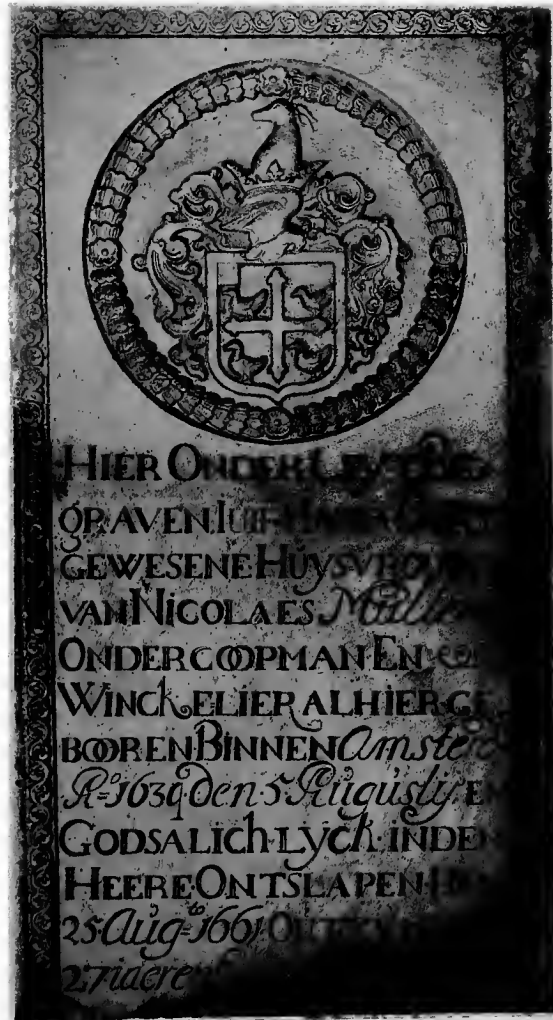 HIER ONDER LEYT BE
GRAVEN IUFF
GEWESENE HUYSVROUW
VAN NICOLAES
ONDERCOOPMAN EN
WINCKELIER ALHIER GE
BOOREN BINNEN Amsterd
Aº 1639 den 5 Augusty EN
GODSALICH·LYCK· IN DEN
HEERE·ONTSLAPEN·
25 Augᵗᵒ 1661
27 iaeren